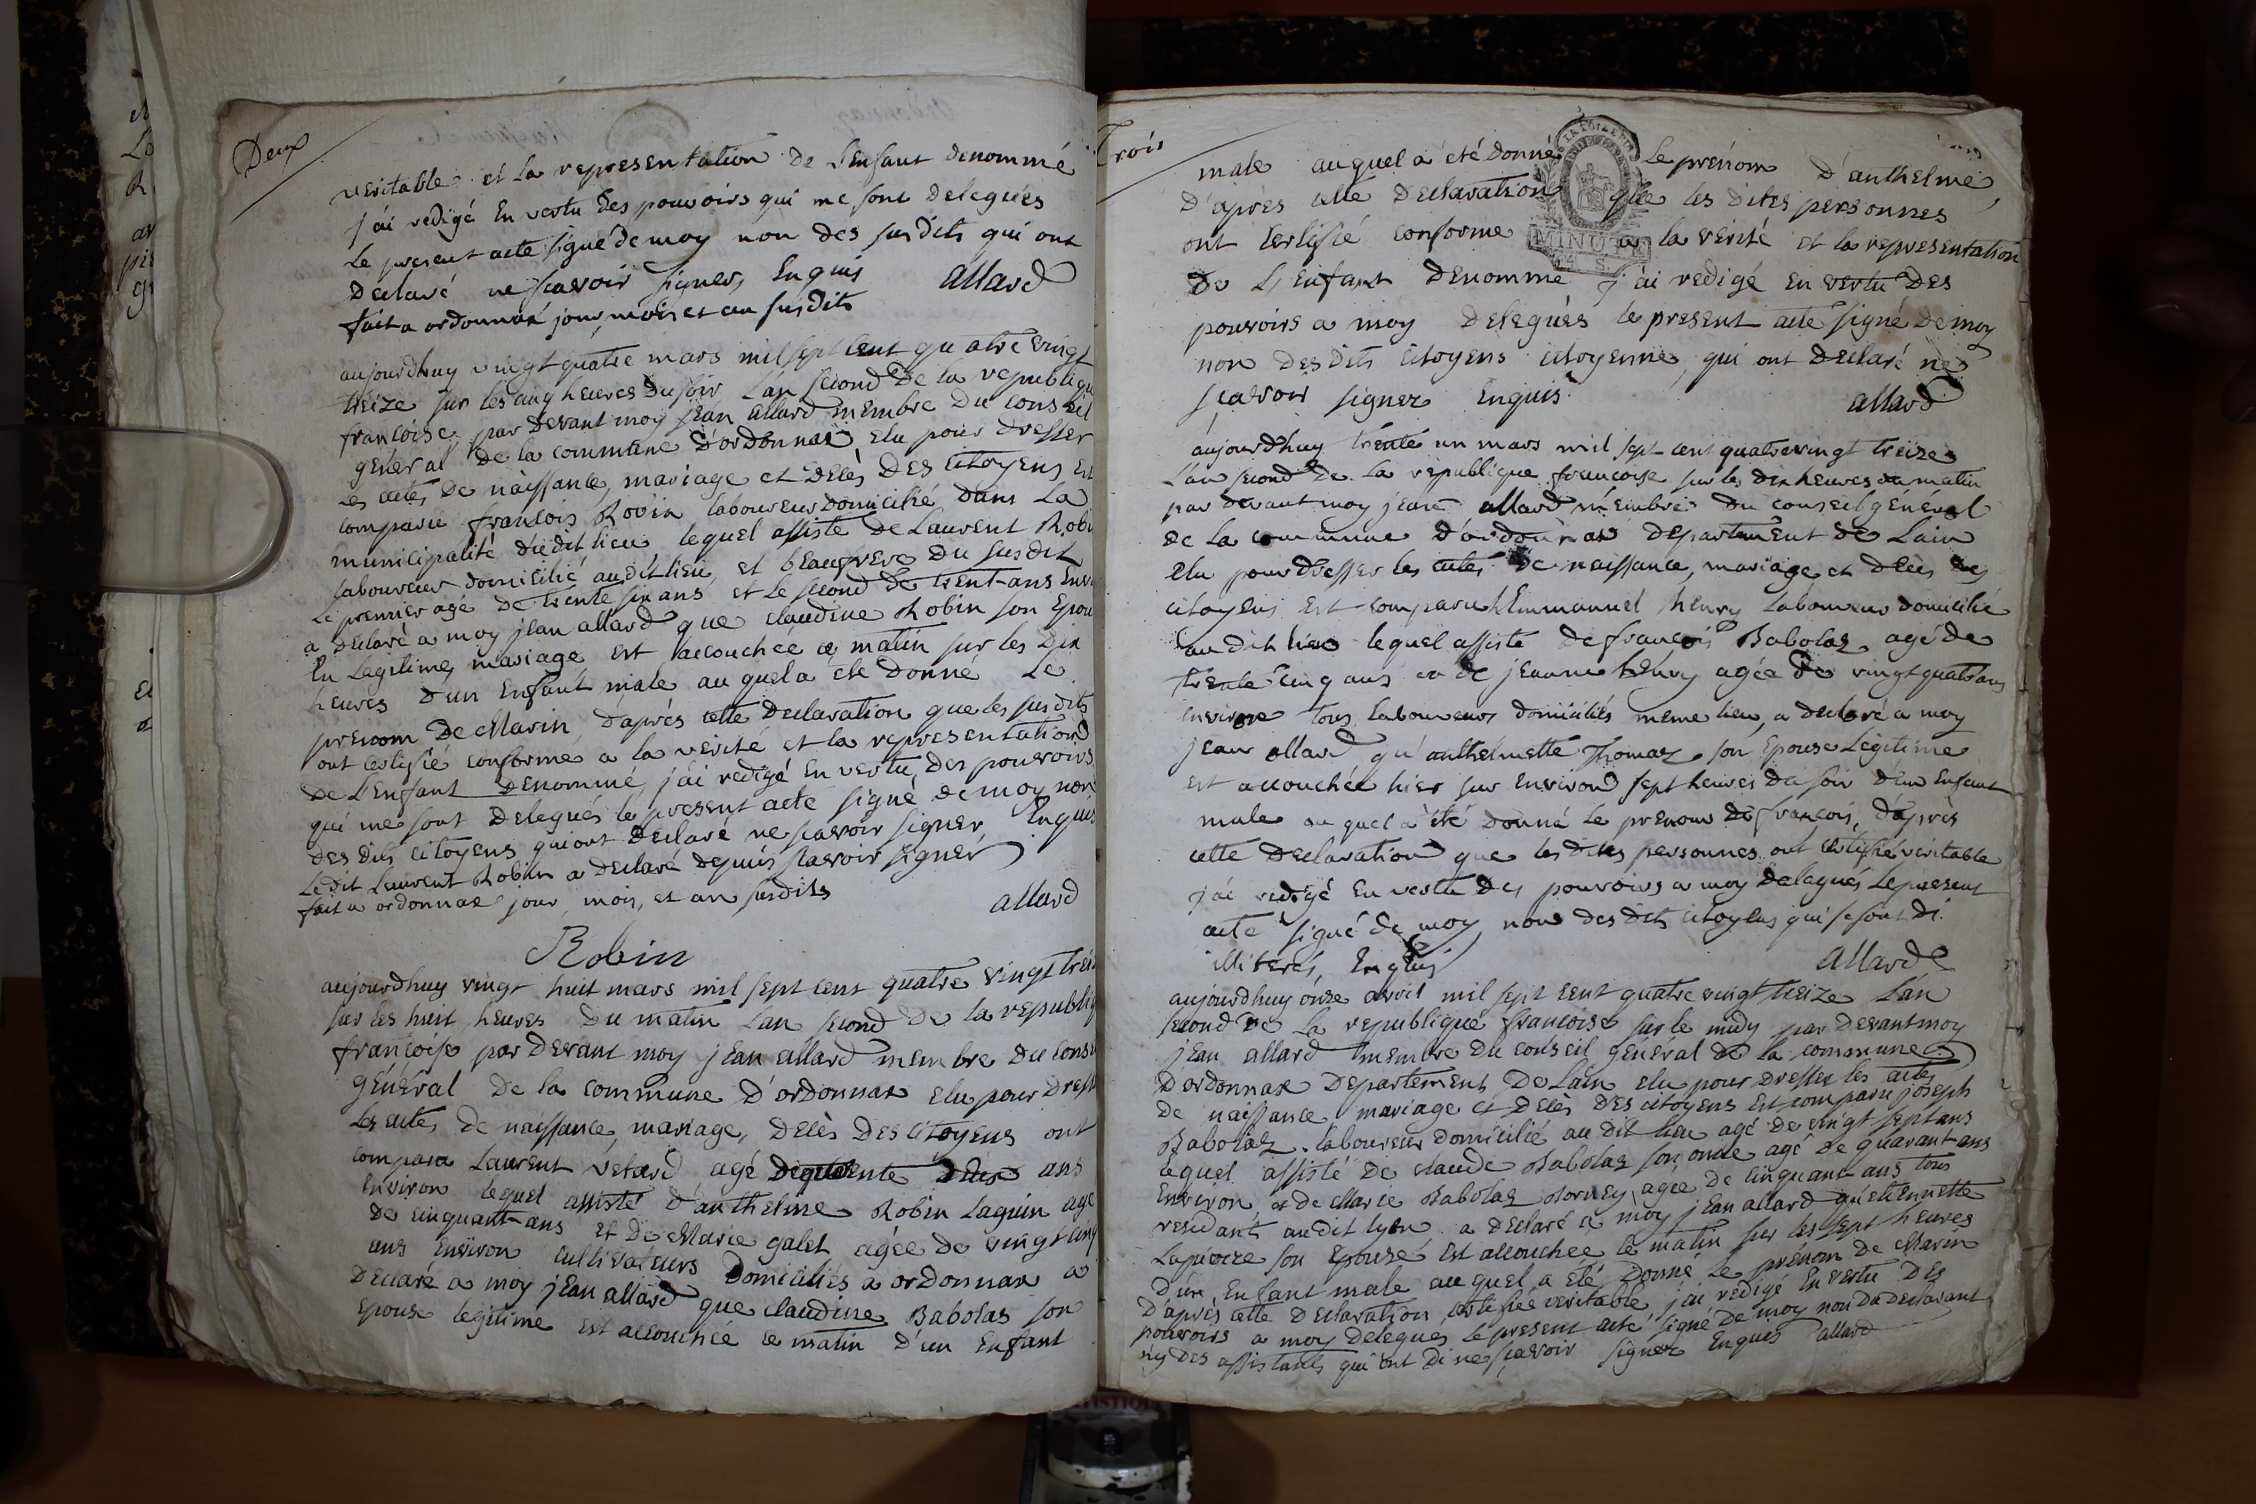 Deux
veritable et la representation de L'enfant denommé
j'ai redigé En vertu des pouvoirs qui me sont delegués
Le present acte signé de moy non des susdits qui ont
declaré ne scavoir signer, Enquis allard
fait a ordonnax jour, mois et an susdits
aujourdhuy vingt quatre mars mil sept cent quatre vingt
treize sur les cinq heures du soir L'an second de la republiqu
françoise par devant moy jean allard membre du conseil
général de la commune d'ordonnax elu pour dresser
Les actes de naissance, mariage et décès des citoyens Est
comparu françois Rovix laboureur domicilié dans la
municipalité dudit lieu lequel assisté de Laurent Robi
laboureur domicilié audit lieu, et beaufrere du susdit
Le premier agé de trente six ans et le second de trent-ans Envi
a declaré a moy jean allard que claudine Robin son Epou
En Lagitime mariage est accouchée ce matin sur les Dix
heures d'un Enfant male au quel a été donné Le
prenom de Marin d'après cette declaration que les susdits
ont certifié conforme a la verité et la representation
de L'Enfant denommé, j'ai redigé En vertu des pouvoirs
qui me sont delegués le present acte signé de moy non
des dits citoyens qui ont declaré ne scavoir signer, Enquis
Ledit Laurent Robin a declaré depuis scavoir signer
fait a ordonnax jour, mois, et an susdits
allard
Robin
aujourdhuy vingt huit mars mil sept cent quatre vingt trei
sur les huit heures du matin L'an second de la republiq
françoise par devant moy jean allard membre du conse
Général de la commune d'ordonnax elu pour dress
Les actes de naissance, mariage, décès des citoyens ont
comparu Laurent agé ans
Environ lequel assisté d'anthelme Robin Laguin agé
de cinquant-ans et de Marie galet agée de vingt cinq
ans Environ cultivateurs domiciliés a ordonnax a
declaré a moy jean allard que claudine Babolas son
epouse legitime est accouchée ce matin d'un Enfant
Trois
male auquel a été donné Le prenom d'anthelme
D'après cette declaration que les dites personnes
ont certifié conforme a la verité et la representation
de L'Enfant denommé j'ai redigé en vertu des
pouvoirs a moy delegués le present acte signé de moy
non desdits citoyens citoyenne, qui ont declaré ne
scavoir signer Enquis
allard
MINUTE
aujourdhuy trente un mars mil sept cent quatrevingt treize
L'an second de la republique françoise sur les dix heures du matin
par devant moy jean allard membre du conseil général
de la commune d'ordonnax departement de Lain
Elu pour dresser les actes de naissance, mariage et décès des
citoyens est comparu Emmanuel henry Laboureur domicilié
au dit lieu lequel assisté de françois Babolaz agé de
trente cinq ans et de jeanne henry agée de vingt quatr ans
environ tous Laboureurs domiciliés meme lieu, a declaré a moy
jean allard qu'anthelmette Thomaz son Epouse Legitime
est accouchée hier sur environ sept heures du soir d'un Enfant
male au quel a été donné Le prenom de françois, d'après
cette declaration que les dites personnes ont certifié veritable
j'ai redigé En vertu des pouvoirs a moy delegués Le present
acte signé de moy non des dits citoyens qui se sont di
illiterés, Enquis
allard
aujourdhuy onze avril mil sept cent quatre vingt treize L'an
second de La republique françoise sur le midy par devant moy
jean allard membre du conseil général de la commune
d'ordonnax departement de Lain elu pour dresser les actes
de naissance, mariage et décès des citoyens est comparu joseph
Babolaz laboureur domicilié au dit lieu agé de vingt sept ans
lequel assisté de claude Babolaz son oncle agé de quarant-ans
Environ, et de Marie Babolaz agée de cinquant-ans tous
residants audit lyeu, a declaré a moy jean allard qu'etiennette
son epouse est accouchée ce matin sur les sept heures
d'un Enfant male au quel a été donné Le prénom de Marin
d'après cette declaration certifiée veritable, j'ai redigé En vertu des
pouvoirs a moy delegués Le present acte signé de moy non du declarant
ny des assistants qui ont di ne scavoir signer Enquis allard